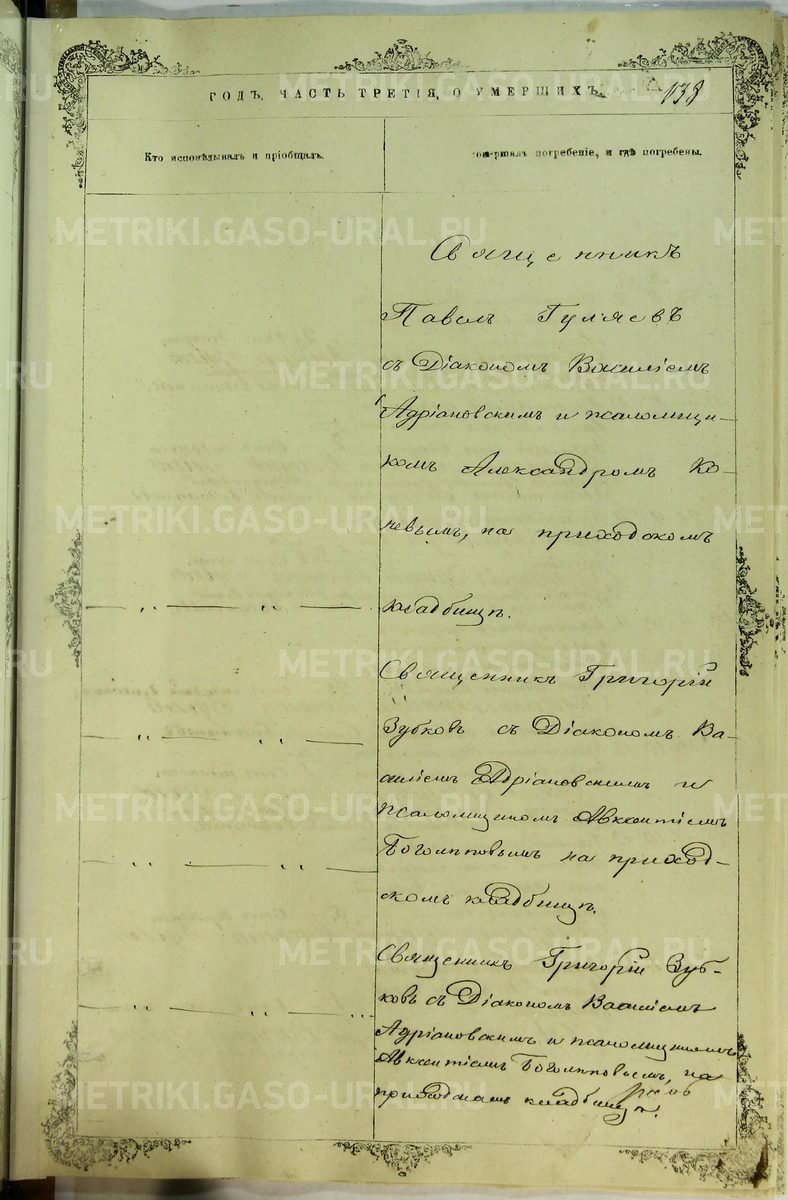 ГОДЪ, ЧАСТЬ ТРЕТІЯ, О УМЕРШИХЪ. 138
Кто исповѣдывалъ и пріобщалъ.
совершалъ погребеніе, и гдѣ погребены.
Священникъ
Павелъ Гуляевъ
съ Діакономъ Василіемъ
Адріановскимъ и псаломщи-
комъ Александромъ Ко-
невымъ, на приходскомъ
— „ — „ — кладбищѣ.
Священникъ Григорій
— „ — „ — Зубковъ съ Діакономъ Ва-
силіемъ Адріановскимъ и
псаломщикомъ Авксентіемъ
— „ — „ — Боголѣповымъ на приход-
скомъ кладбищѣ.
Священникъ Григорій Зуб-
— „ — „ — „ ковъ съ Діакономъ Василіемъ
Адріановскимъ и псаломщикомъ
Авксентіемъ Боголѣповымъ, на
приходскомъ кладбищѣ.
METRIKI.GASO-URAL.RU